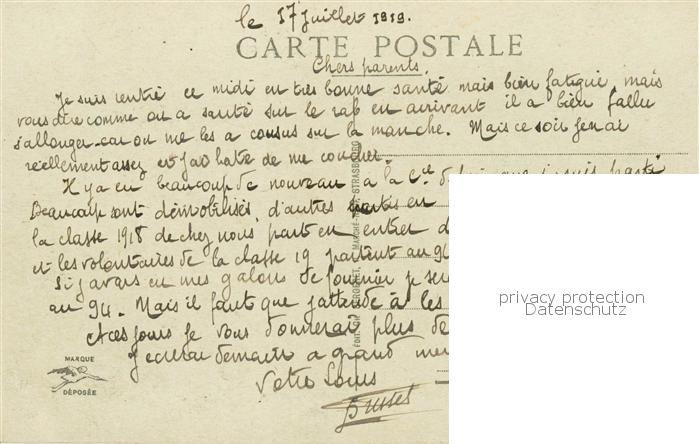 le 17 Juillet 1919.
CARTE POSTALE
Chers parents,
Je suis rentré ce midi en très bonne santé mais bien fatigué, mais
vous dire comme on a sauté sur le rab en arrivant il a bien fallu
s'allonger car on me les a cousus sur la manche. Mais ce soir j'en ai
réellement assez et j'ai hate de me coucher.
Il y a eu beaucoup de nouveau a la Cie depuis que je suis parti
Beaucoup sont démobilisés, d'autres en
la classe 1918 de chez nous part en entier d
et les volontaires de la classe 19 partent au 94
Si j'avais eu mes galons de fourrier je ser
au 94. Mais il faut que j'attende à les
A ces jours je vous donnerai plus de
J'ecrirai demain a grand mer
Votre Louis
MARQUE
DÉPOSÉE
STRASBOURG
privacy protection
Datenschutz